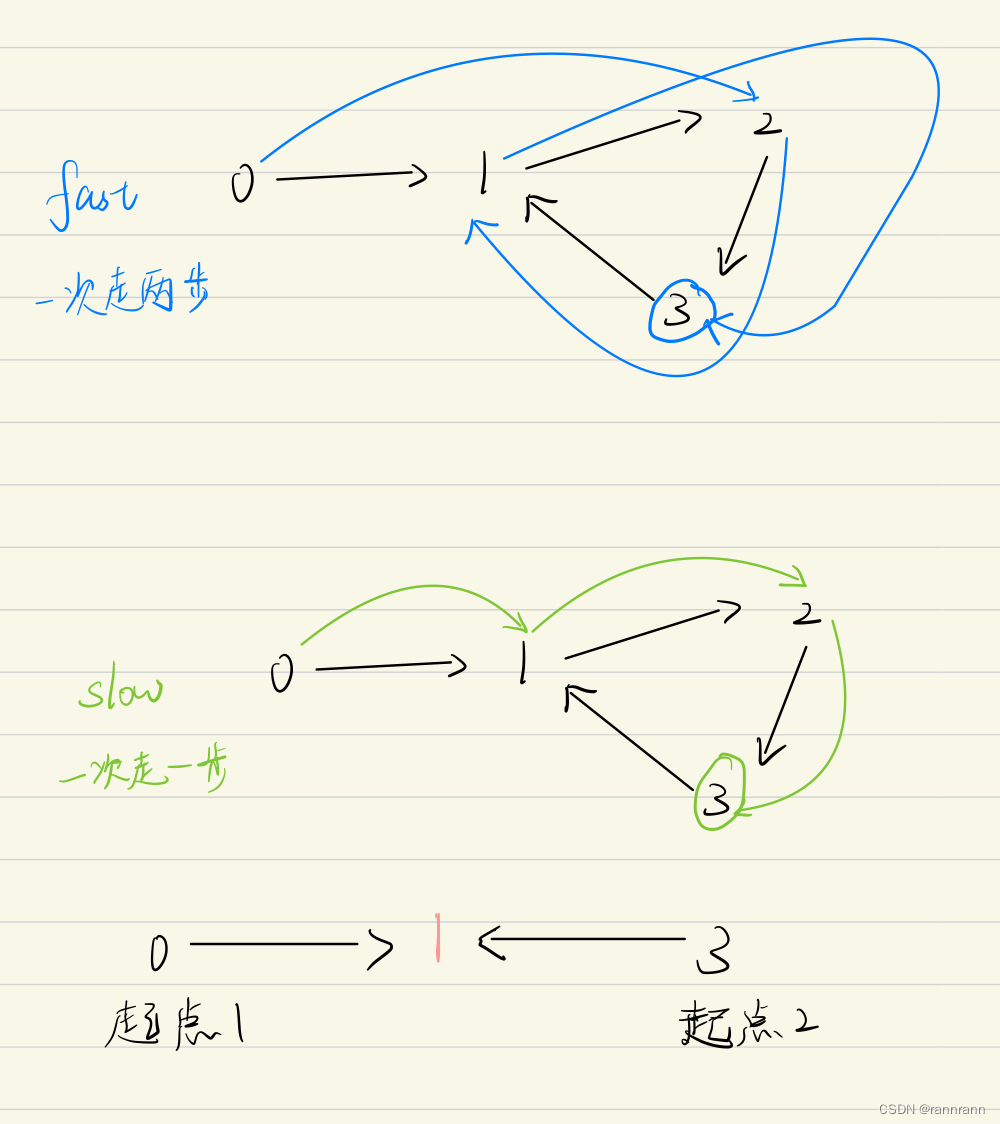 2
0 1
fast
一次走两步
3
2
0 1
slow
一次走一步
3
0 1 3
起点1 起点2
CSDN @rannrann